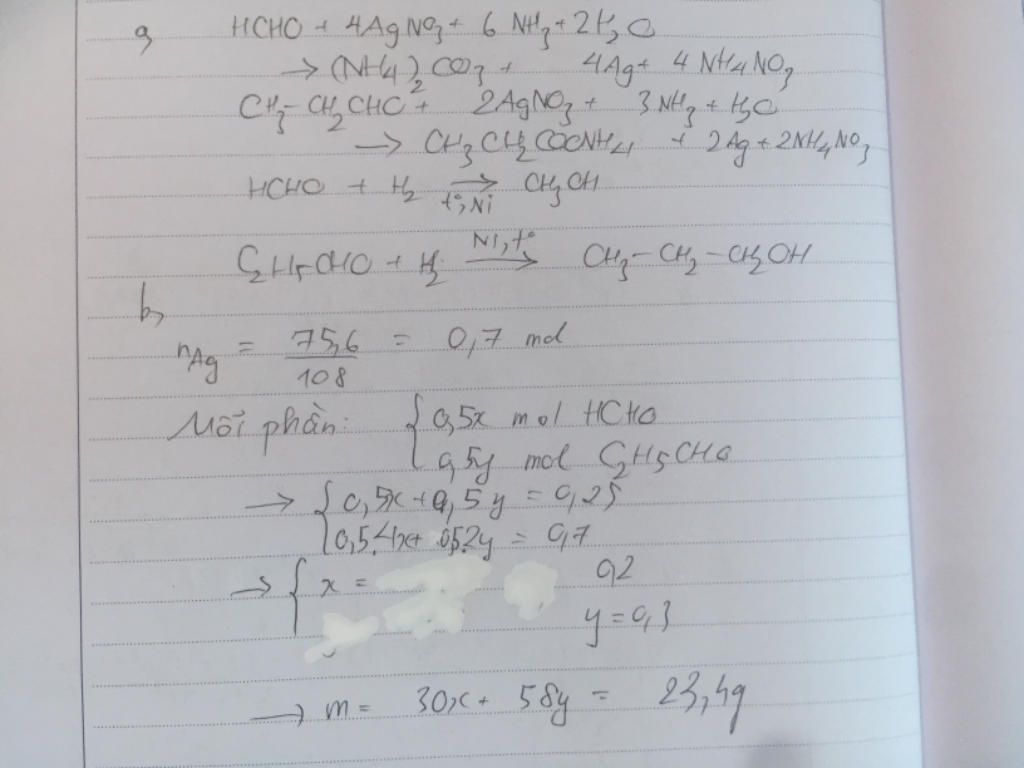 a,
HCHO + 4AgNO₃ + 6 NH₃ + 2H₂O
→ (NH4)₂CO₃ + 4Ag + 4 NH4NO₃
CH₃-CH₂CHO + 2AgNO₃ + 3NH₃ + H₂O
→ CH₃CH₂COONH4 + 2Ag + 2NH4NO₃
HCHO + H₂ → CH₃OH
t°, Ni
Ni, t°
C₂H₅CHO + H₂ → CH₃-CH₂-CH₂OH
b,
nAg = 75,6 / 108 = 0,7 mol
Mỗi phần: { 0,5x mol HCHO
0,5y mol C₂H₅CHO
→ { 0,5x + 0,5y = 0,25
0,5.4x + 0,5.2y = 0,7
→ { x = 0,2
y = 0,3
→ m = 30x + 58y = 23,4g